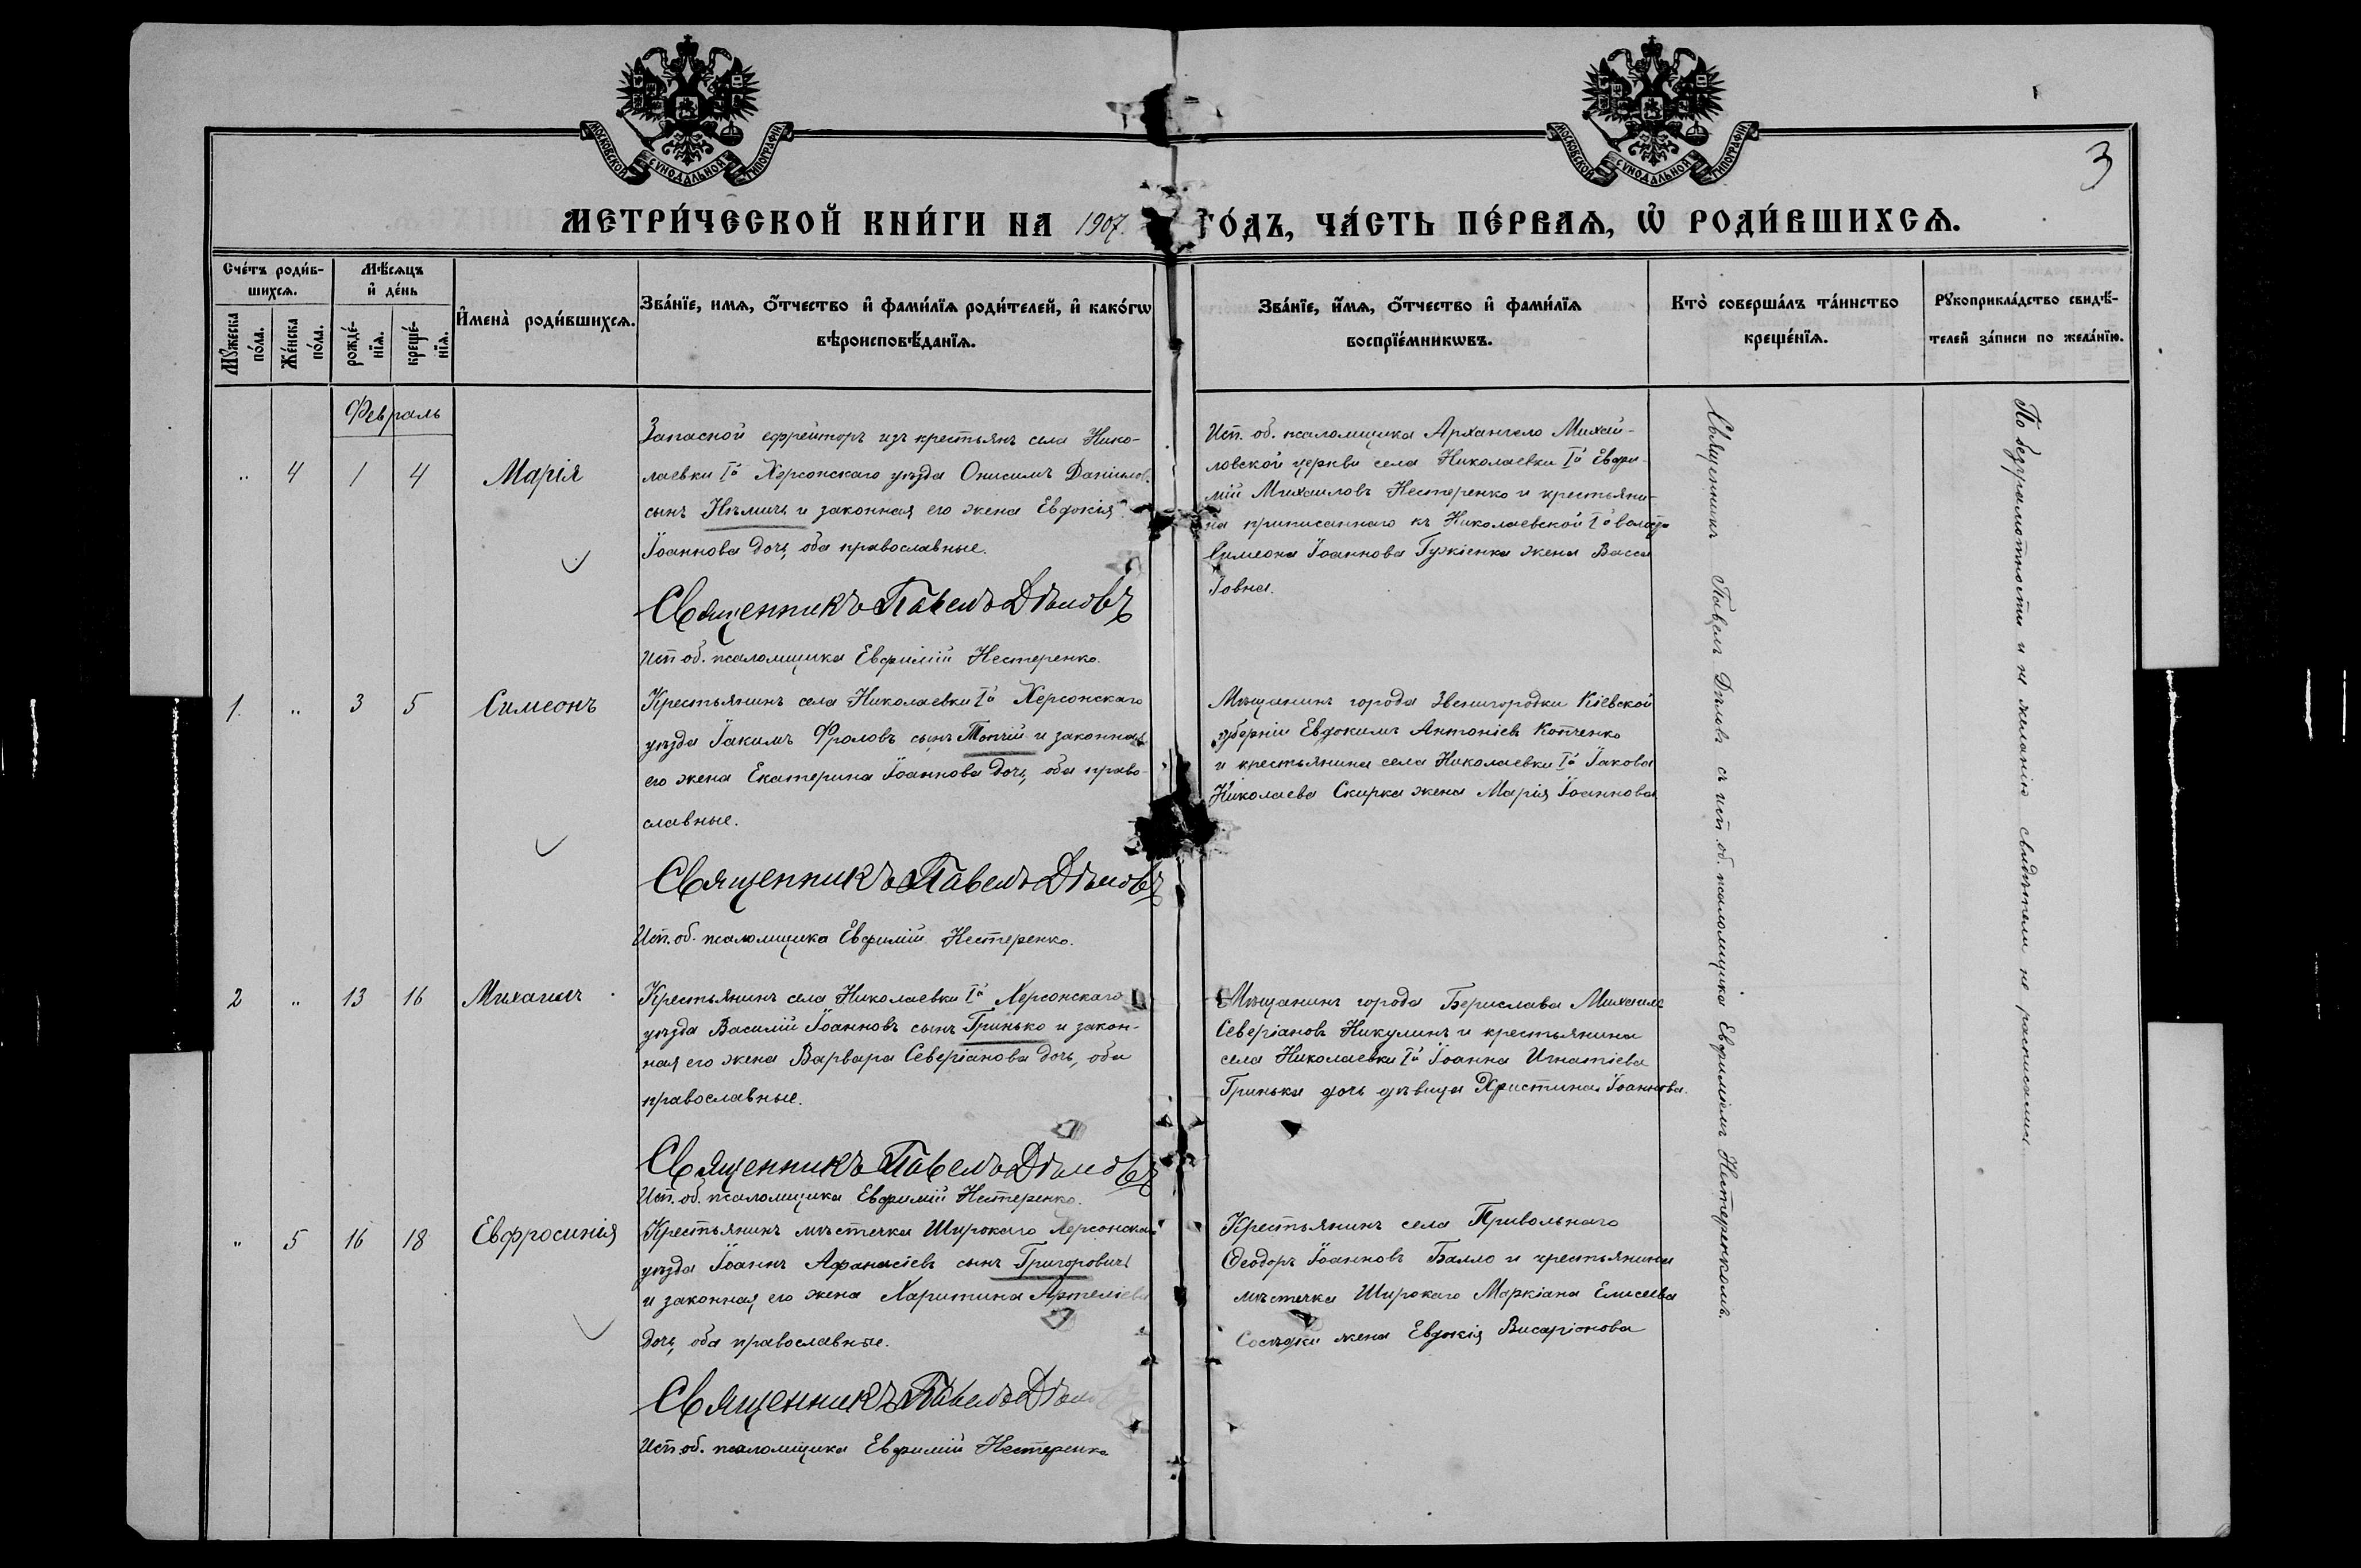 МОСКОВСКОЙ СѴНОДАЛЬНОЙ ТИПОГРАФІИ
МОСКОВСКОЙ СѴНОДАЛЬНОЙ ТИПОГРАФІИ
3
МЕТРИ́ЧЕСКОЙ КНИ́ГИ НА 1907. ГО́ДЪ, ЧА́СТЬ ПЕ́РВАЯ, Ѡ҆ РОДИ́ВШИХСѦ.
Сче́тъ роди́в-
шихсѧ.
Мꙋ́жеска по́ла.
Же́нска по́ла.
Мѣ́сѧцъ
и҆ де́нь
рожде́-
нїѧ.
креще́-
нїѧ.
И҆мена̀ роди́вшихсѧ.
Зва́нїе, имѧ, ѻ҆́тчество и҆ фами́лїѧ роди́телей, и҆ како́гѡ
вѣроисповѣ́данїѧ.
Зва́нїе, и҆́мѧ, ѻ҆́тчество и҆ фами́лїѧ
воспрїе́мникѡвъ.
Кто̀ соверша́лъ та́инство
креще́нїѧ.
Рꙋкоприкла́дство свидѣ́-
телей за́писи по жела́нїю.
Февраль
„ 4 1 4 Марія
Запасной ефрейторъ изъ крестьянъ села Нико-
лаевки Iй Херсонскаго уѣзда Онисимъ Даніилов.
сынъ Нѣмичъ и законная его жена Евдокія
Іоаннова дочь, оба православные.
Священникъ Павелъ Дѣловъ
Исп. об. псаломщика Евфимій Нестеренко.
Исп. об. псаломщика Архангело Михай-
ловской церкви села Николаевки Iй Евфи-
мій Михаиловъ Нестеренко и крестьяни-
на приписаннаго къ Николаевской Iй волости
Симеона Іоаннова Гужіенка жена Васса
Іовна.
1. „ 3 5 Симеонъ
Крестьянинъ села Николаевки Iй Херсонскаго
уѣзда Іакимъ Фроловъ сынъ Топчій и законная
его жена Екатерина Іоаннова дочь, оба право-
славные.
Священникъ Павелъ Дѣловъ
Исп. об. псаломщика Евфимій Нестеренко.
Мѣщанинъ города Звенигородки Кіевской
губерніи Евдокимъ Антоніевъ Копченко
и крестьянина села Николаевки Iй Іакова
Николаева Скирка жена Марія Іоаннова
2 „ 13 16 Михаилъ
Крестьянинъ села Николаевки Iй Херсонскаго
уѣзда Василій Іоанновъ сынъ Гринько и закон-
ная его жена Варвара Северіанова дочь, оба
православные.
Священникъ Павелъ Дѣловъ
Исп. об. псаломщика Евфимій Нестеренко.
Мѣщанинъ города Берислава Михаилъ
Северіановъ Никулинъ и крестьянина
села Николаевки Iй Іоанна Игнатіева
Гринька дочь дѣвица Христина Іоаннова.
„ 5 16 18 Евфросинія
Крестьянинъ мѣстечка Широкаго Херсонскаго
уѣзда Іоаннъ Афанасіевъ сынъ Григоровичъ
и законная его жена Харитина Артеміева
дочь, оба православные.
Священникъ Павелъ Дѣловъ
Исп. об. псаломщика Евфимій Нестеренко
Крестьянинъ села Привольнаго
Ѳеодоръ Іоанновъ Балло и крестьянина
мѣстечка Широкаго Маркіана Елисеева
Сосѣдки жена Евдокія Висаріонова
Священникъ Павелъ Дѣловъ съ исп. об. псаломщика Евфиміемъ Нестеренкомъ.
По безграмотности и не желанію свидѣтели не расписались.